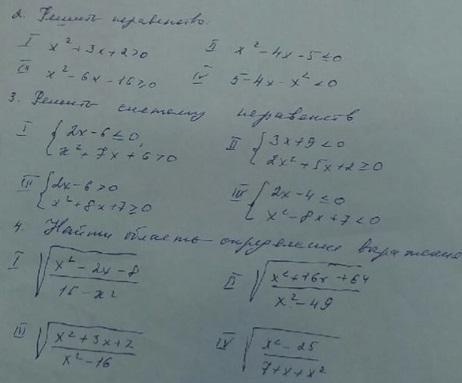 2. Решить неравенство.
I x² + 3x + 2 > 0 II x² - 4x - 5 ≤ 0
III x² - 6x - 16 ≥ 0 IV 5 - 4x - x² < 0
3. Решить систему неравенств
I { 2x - 6 ≤ 0, II { 3x + 9 < 0
x² + 7x + 6 > 0 2x² + 5x + 2 ≥ 0
III { 2x - 6 > 0 IV { 2x - 4 ≤ 0
x² + 8x + 7 ≥ 0 x² - 8x + 7 < 0
4. Найти область определения выражения
I √((x² - 2x - 8)/(16 - x²)) II √((x² + 16x + 64)/(x² - 49))
III √((x² + 3x + 2)/(x² - 16)) IV √((x² - 25)/(7 + x + x²))